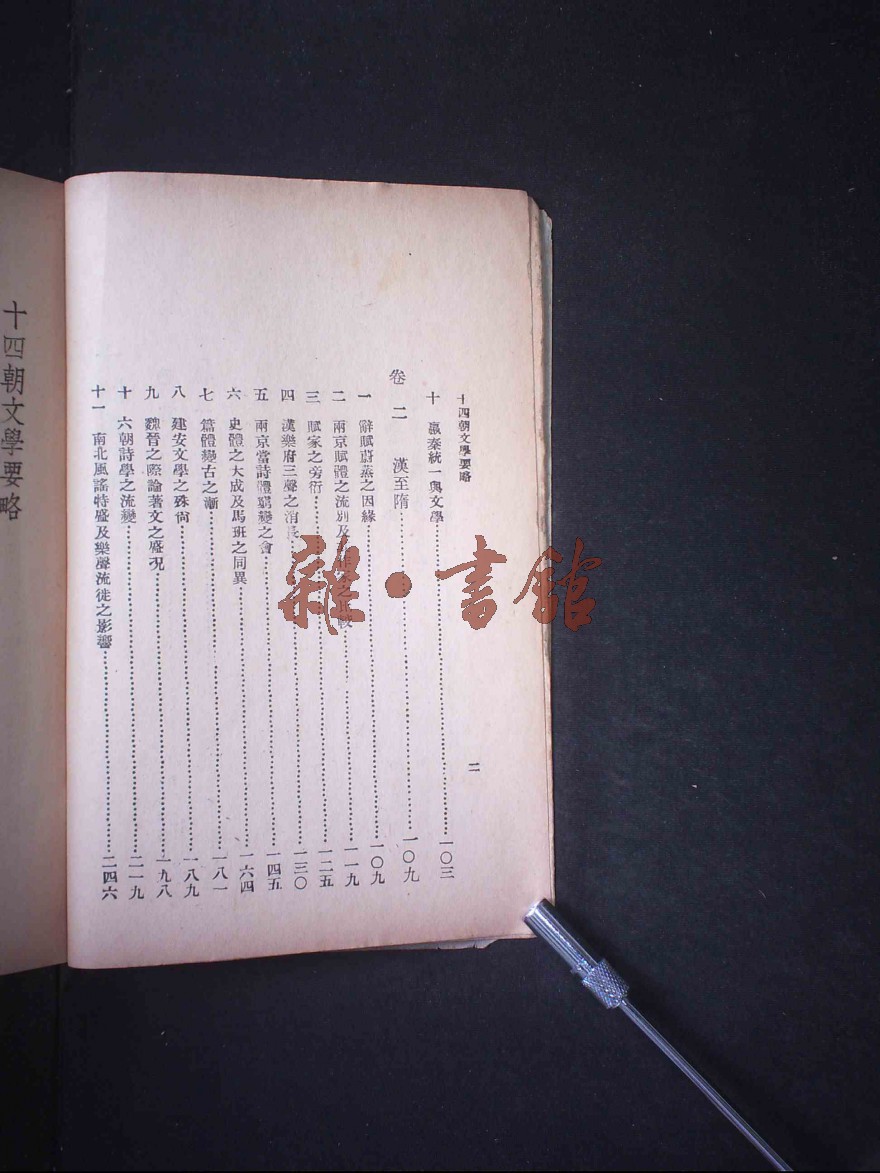 十四朝文學要略
二
十 嬴秦統一與文學…………一〇三
卷二 漢至隋…………一〇九
一 辭賦蔚蒸之因緣…………一〇九
二 兩京賦體之流別及…………一一九
三 賦家之旁衍…………一二五
四 漢樂府三聲之消長…………一三〇
五 兩京當詩體窮變之會…………一四五
六 史體之大成及馬班之同異…………一六四
七 篇體變古之漸…………一八一
八 建安文學之殊尙…………一八九
九 魏晉之際論著文之盛況…………一九八
十 六朝詩學之流變…………二一九
十一 南北風謠特盛及樂聲流徙之影響…………二四六
十四朝文學要略
雜·書館